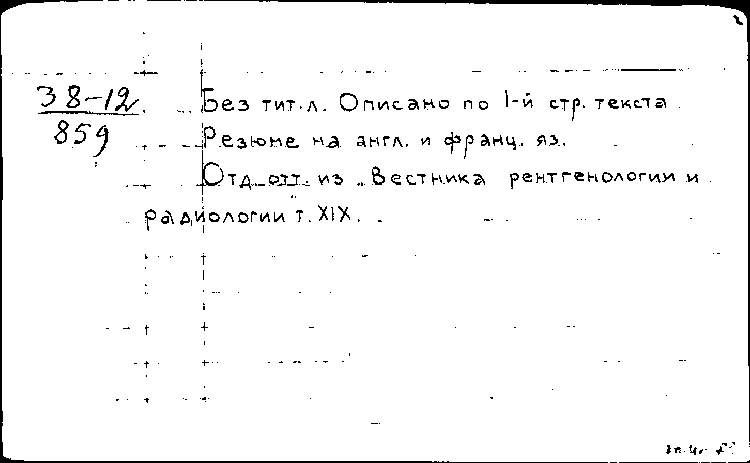 2
38-12
859
Без тит.л. Описано по 1-й стр. текста
Резюме на англ. и франц. яз.
Отд. отт. из „Вестника рентгенологии и
радиологии" т. XIX.